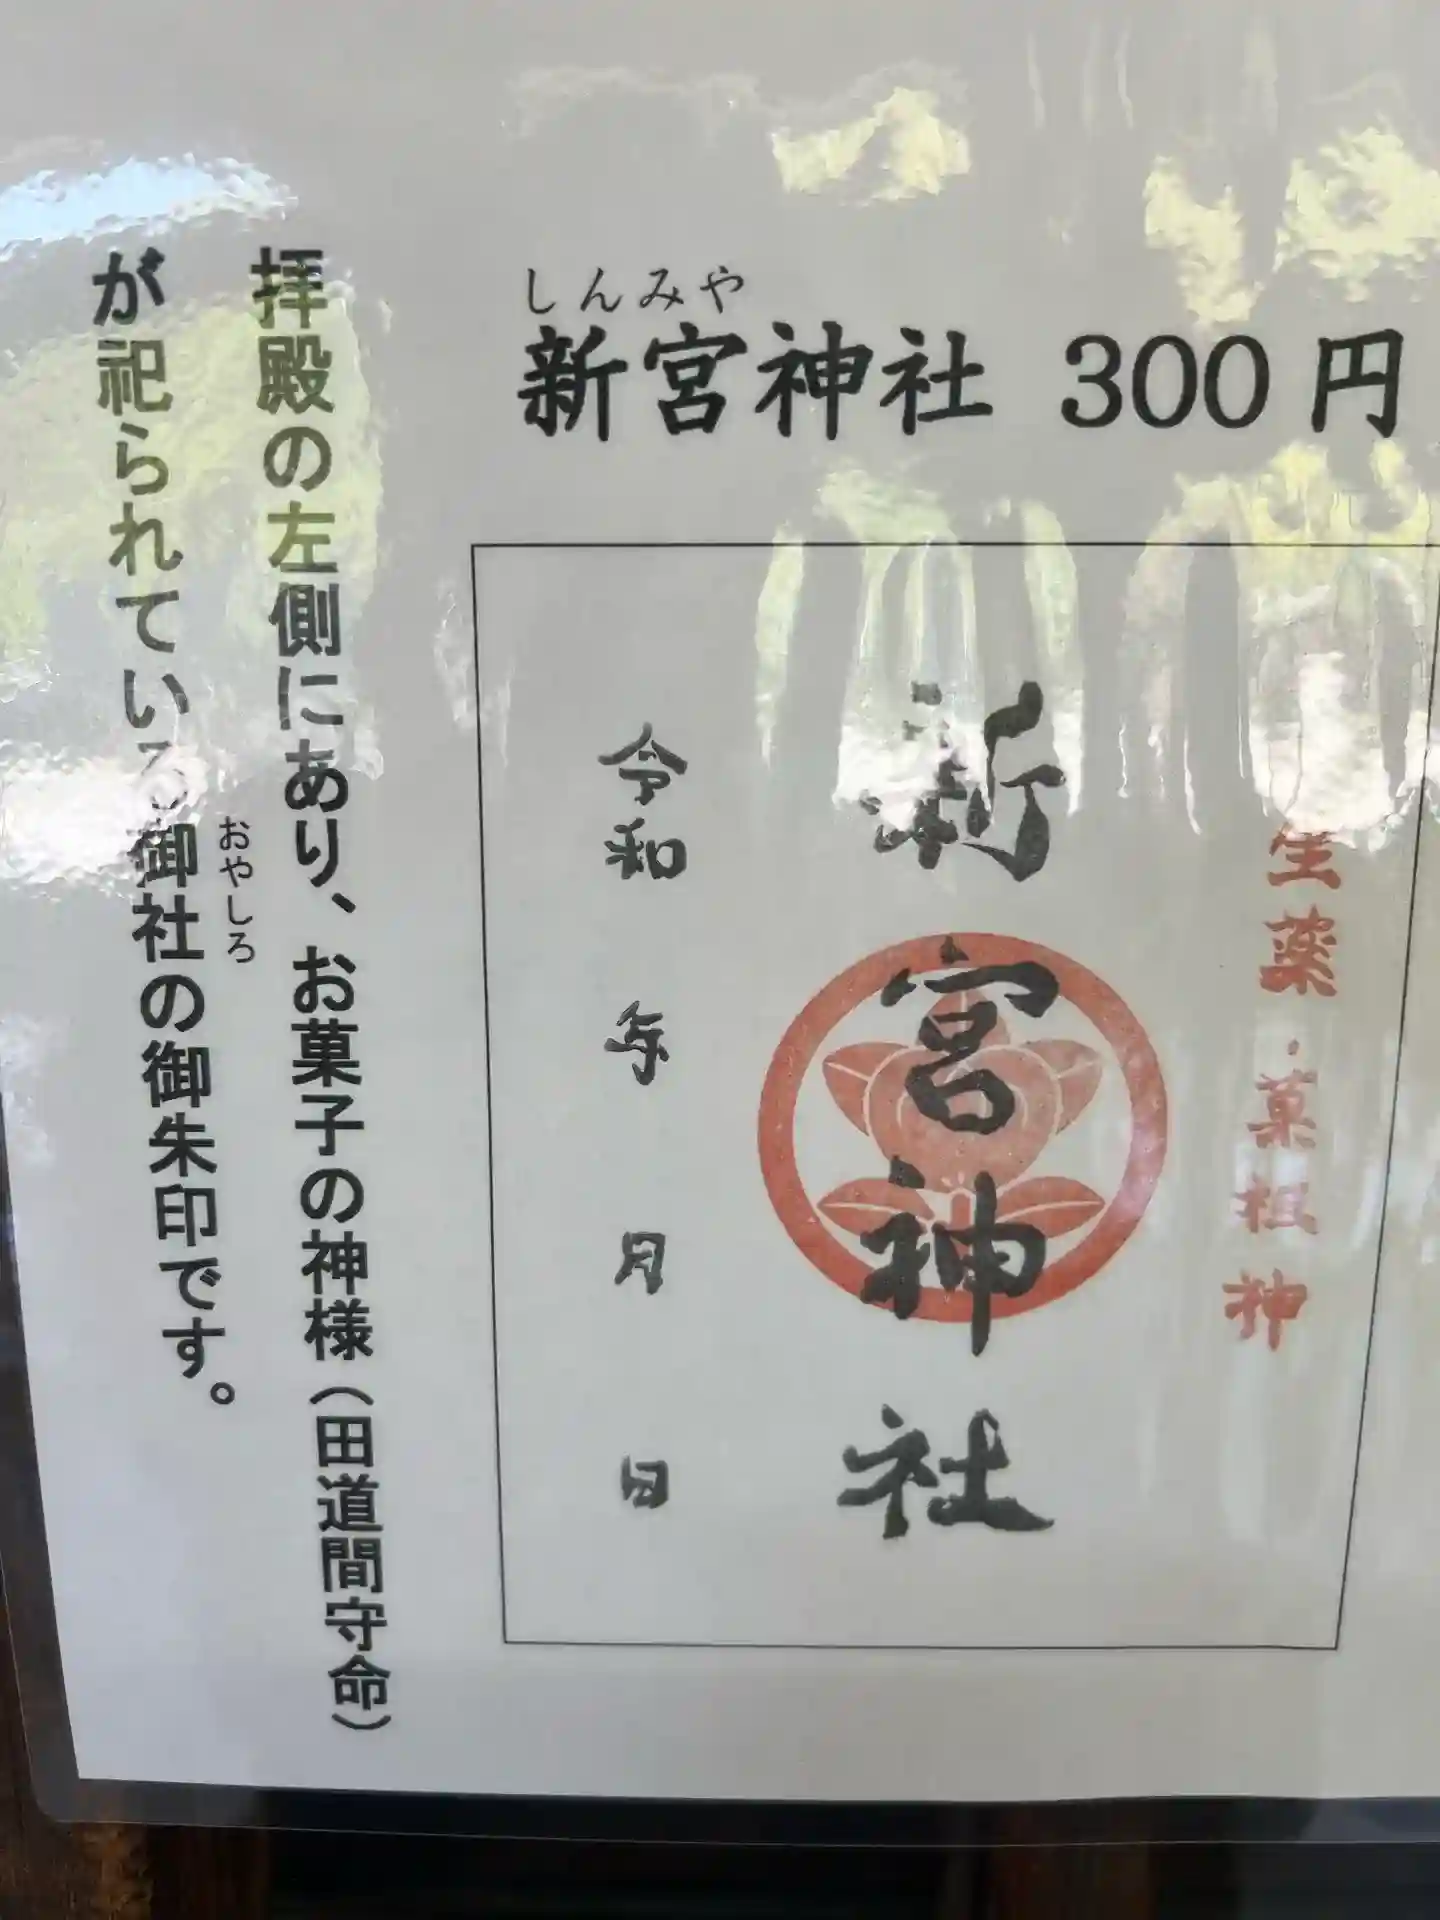 しんみや
新宮神社 300円
生薬・菓祖神
新宮神社
令和 年 月 日
拝殿の左側にあり、お菓子の神様(田道間守命)
おやしろ
が祀られている御社の御朱印です。